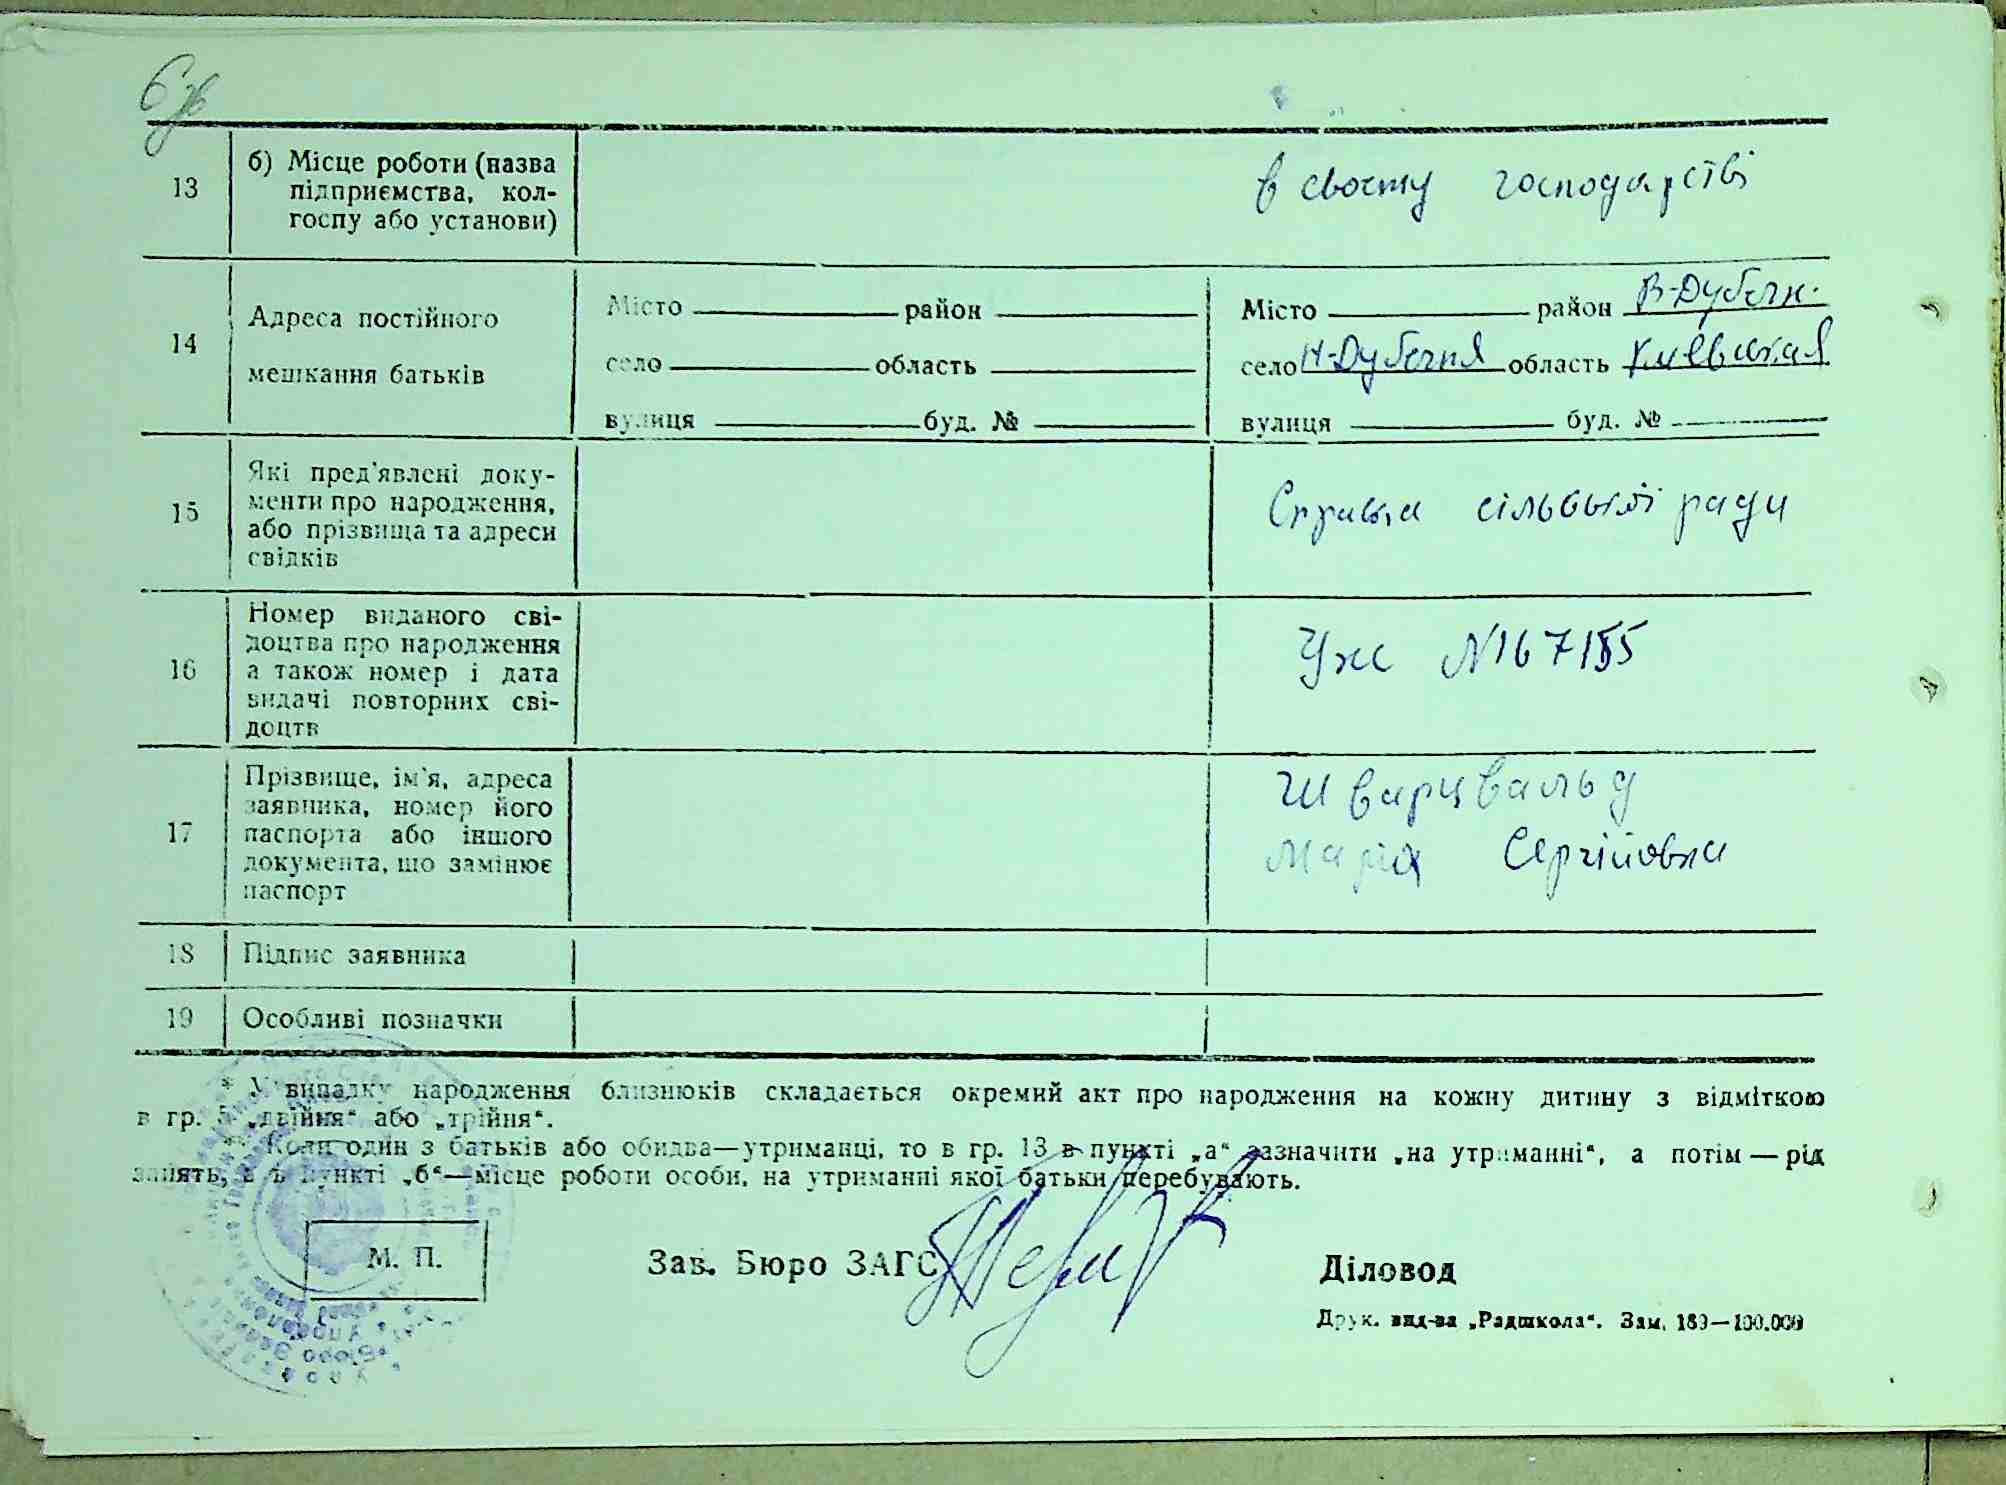 6 зв
13 б) Місце роботи (назва
підприємства, кол-
госпу або установи)
в своєму господарстві
14 Адреса постійного
мешкання батьків
Місто район
село область
вулиця буд. №
Місто район В-Дубечн.
село Н-Дубечня область Киевская
вулиця буд. №
15 Які пред'явлені доку-
менти про народження,
або прізвища та адреси
свідків
Справка сільської ради
16 Номер виданого сві-
доцтва про народження
а також номер і дата
видачі повторних сві-
доцтв
N167155
17 Прізвище, ім'я, адреса
заявника, номер його
паспорта або іншого
документа, що замінює
паспорт
Шварцвальд
Марія Сергійовна
18 Підпис заявника
19 Особливі позначки
* У випадку народження близнюків складається окремий акт про народження на кожну дитину з відміткою
в гр. 5 „двійня“ або „трійня“.
** Коли один з батьків або обидва—утриманці, то в гр. 13 в пункті „а“ зазначити „на утриманні“, а потім — рід
занять, а в пункті „б“—місце роботи особи, на утриманні якої батьки перебувають.
М. П.
Зав. Бюро ЗАГС
Діловод
Друк. вид-ва „Радшкола“. Зам. 189—100.000